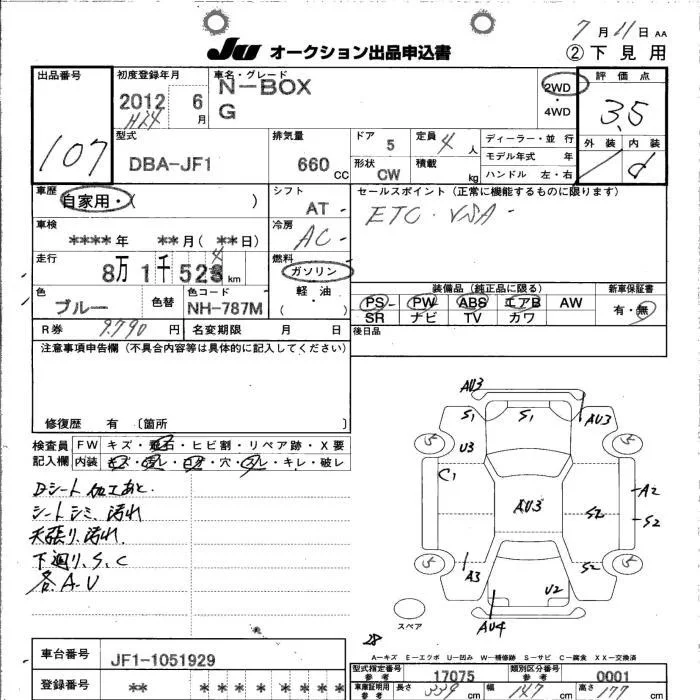 7月11日 AA
JU オークション出品申込書
②下見用
出品番号
107
初度登録年月
2012 6月
H24
車名・グレード
N-BOX
G
2WD
・
4WD
評価点
3.5
外装 内装
型式
DBA-JF1
排気量
660 CC
ドア
5
定員
4人
ディーラー・並行
モデル年式 年
形状
CW
積載
kg
ハンドル 左・右
車歴
自家用・( )
シフト
AT -
セールスポイント(正常に機能するものに限ります)
ETC・VSA -
車検
****年 **月(**日)
冷房
AC -
走行
8万1千523km
4
燃料
ガソリン
軽・油
( )
色
ブルー
色替
色コード
NH-787M
装備品(純正品に限る)
新車保証書
PS PW ABS エアB AW
SR ナビ TV カワ
有・無
R券 9,790円
名変期限 月 日
後日品
注意事項申告欄(不具合内容等は具体的に記入してください)
修復歴 有 〔箇所 〕
検査員
記入欄
FW キズ・飛石・ヒビ割・リペア跡・X要
内装 キズ・汚レ・日ヤケ・穴・コゲ・キレ・破レ
Dシート 加工あと.
シートシミ、汚れ
天張り、汚れ.
下廻り、S、C
各A-U
AU3
S1
S1
AU3
U3
C1
AU3
A2
S2
S2
A3
S2
U2
AU4
スペア
28
A-キズ E-エクボ U-凹み W-補修跡 S-サビ C-腐食 XX-交換済
車台番号
JF1-1051929
登録番号
** * * * * * * *
型式指定番号
参考
17075
類別区分番号
参考
0001
車庫証明用
参考
長さ 339cm
幅 147cm
高さ 177cm